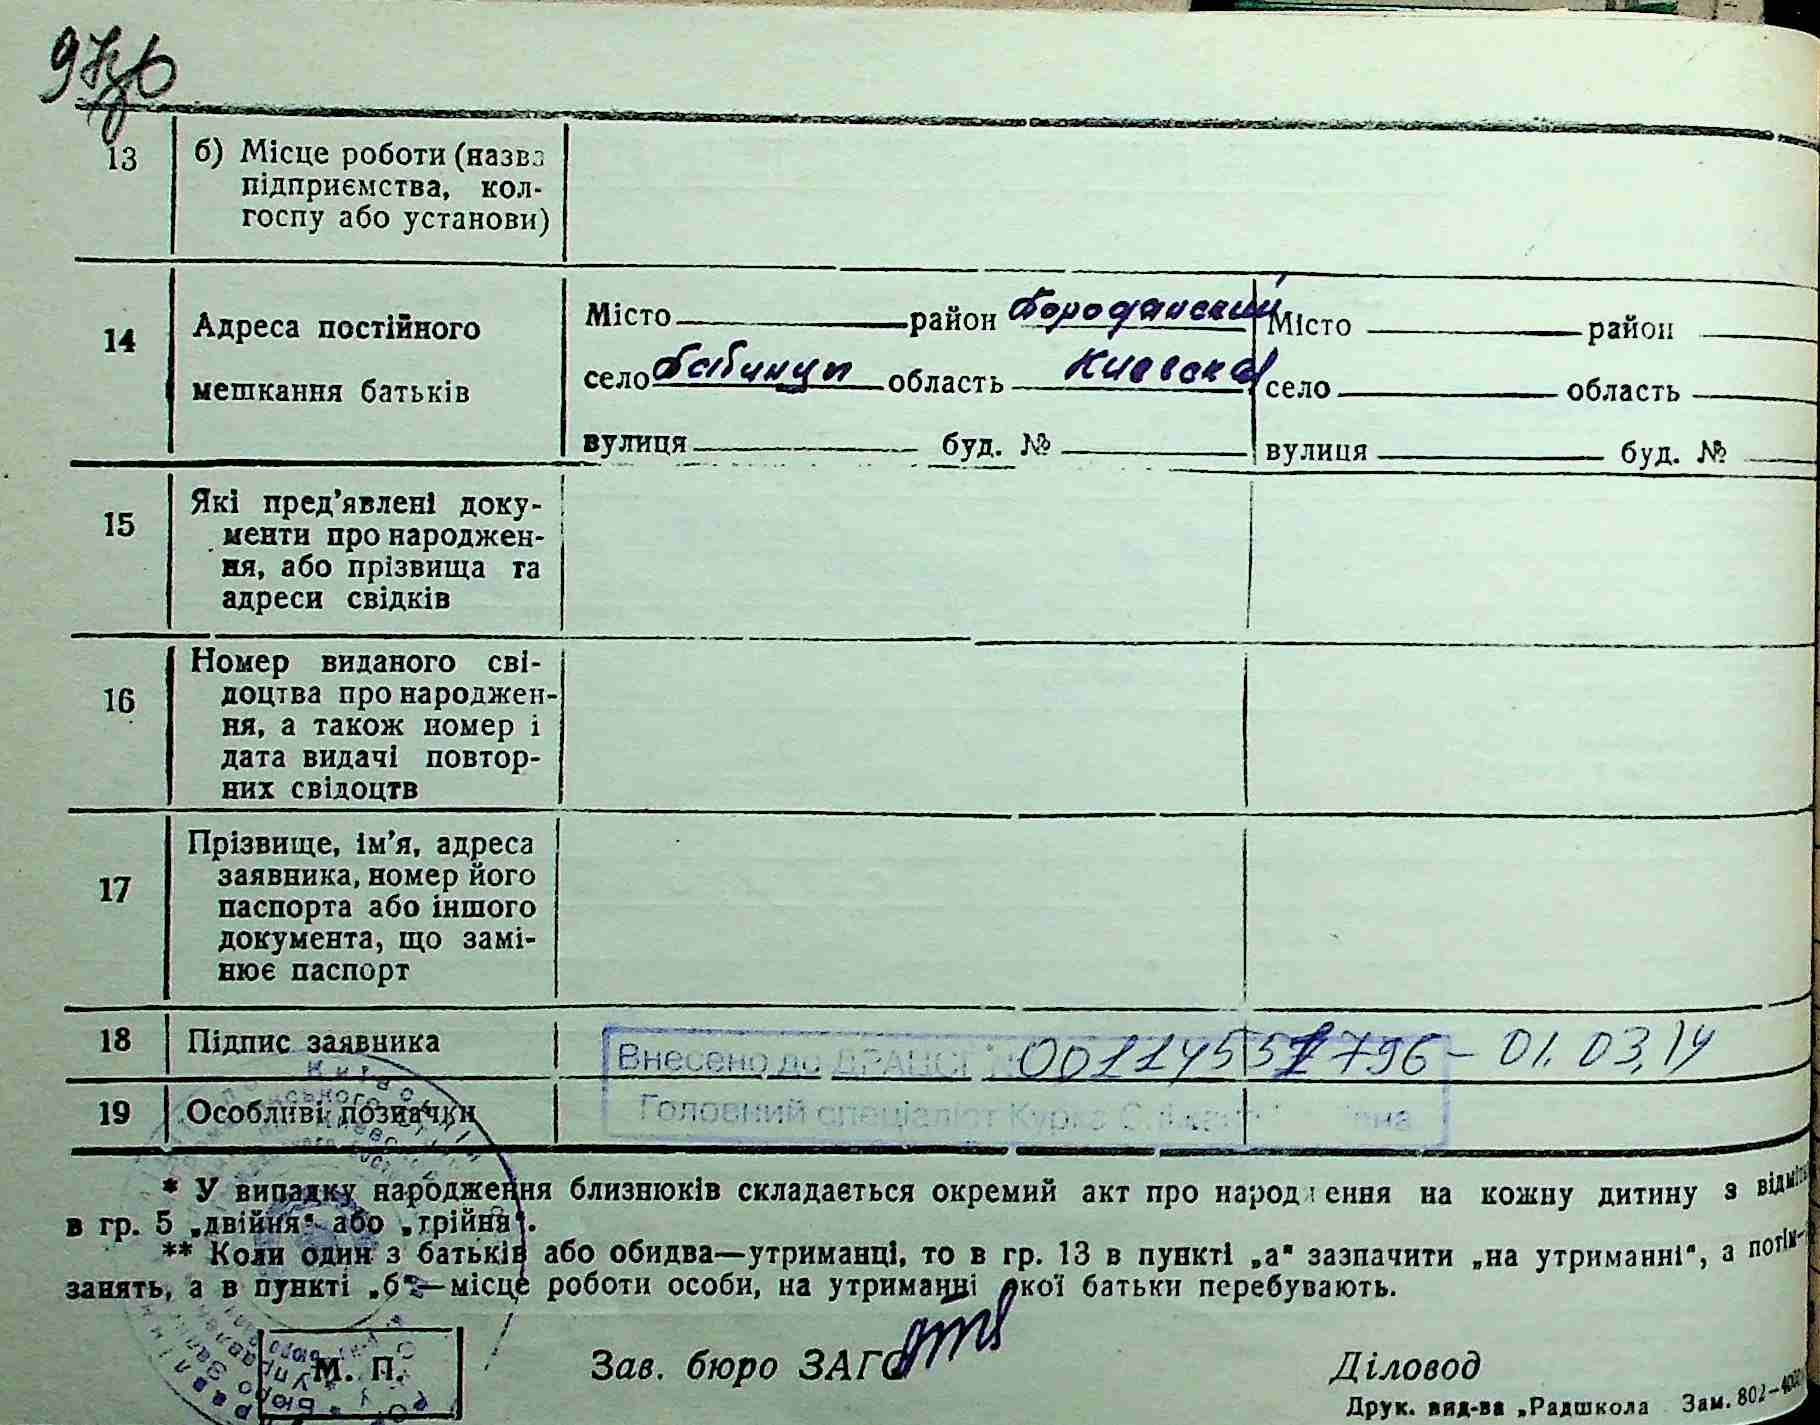 13 б) Місце роботи (назва
підприємства, кол-
госпу або установи)
14 Адреса постійного
мешкання батьків
Місто район Бородянский
село Бабинцы область Киевская
вулиця буд. №
Місто район
село область
вулиця буд. №
15 Які пред'явлені доку-
менти про народжен-
ня, або прізвища та
адреси свідків
16 Номер виданого сві-
доцтва про народжен-
ня, а також номер і
дата видачі повтор-
них свідоцтв
17 Прізвище, ім'я, адреса
заявника, номер його
паспорта або іншого
документа, що замі-
нює паспорт
18 Підпис заявника
Внесено до ДРАЦСГ 00114551796 - 01.03.14
19 Особливі позначки
Головний спеціаліст
* У випадку народження близнюків складається окремий акт про народження на кожну дитину з
в гр. 5 „двійня“ або „трійня“.
** Коли один з батьків або обидва—утриманці, то в гр. 13 в пункті „а“ зазначити „на утриманні“, а потім—
занять, а в пункті „б“—місце роботи особи, на утриманні якої батьки перебувають.
М. П.
Зав. бюро ЗАГС
Діловод
Друк. вид-ва „Радшкола Зам. 802—